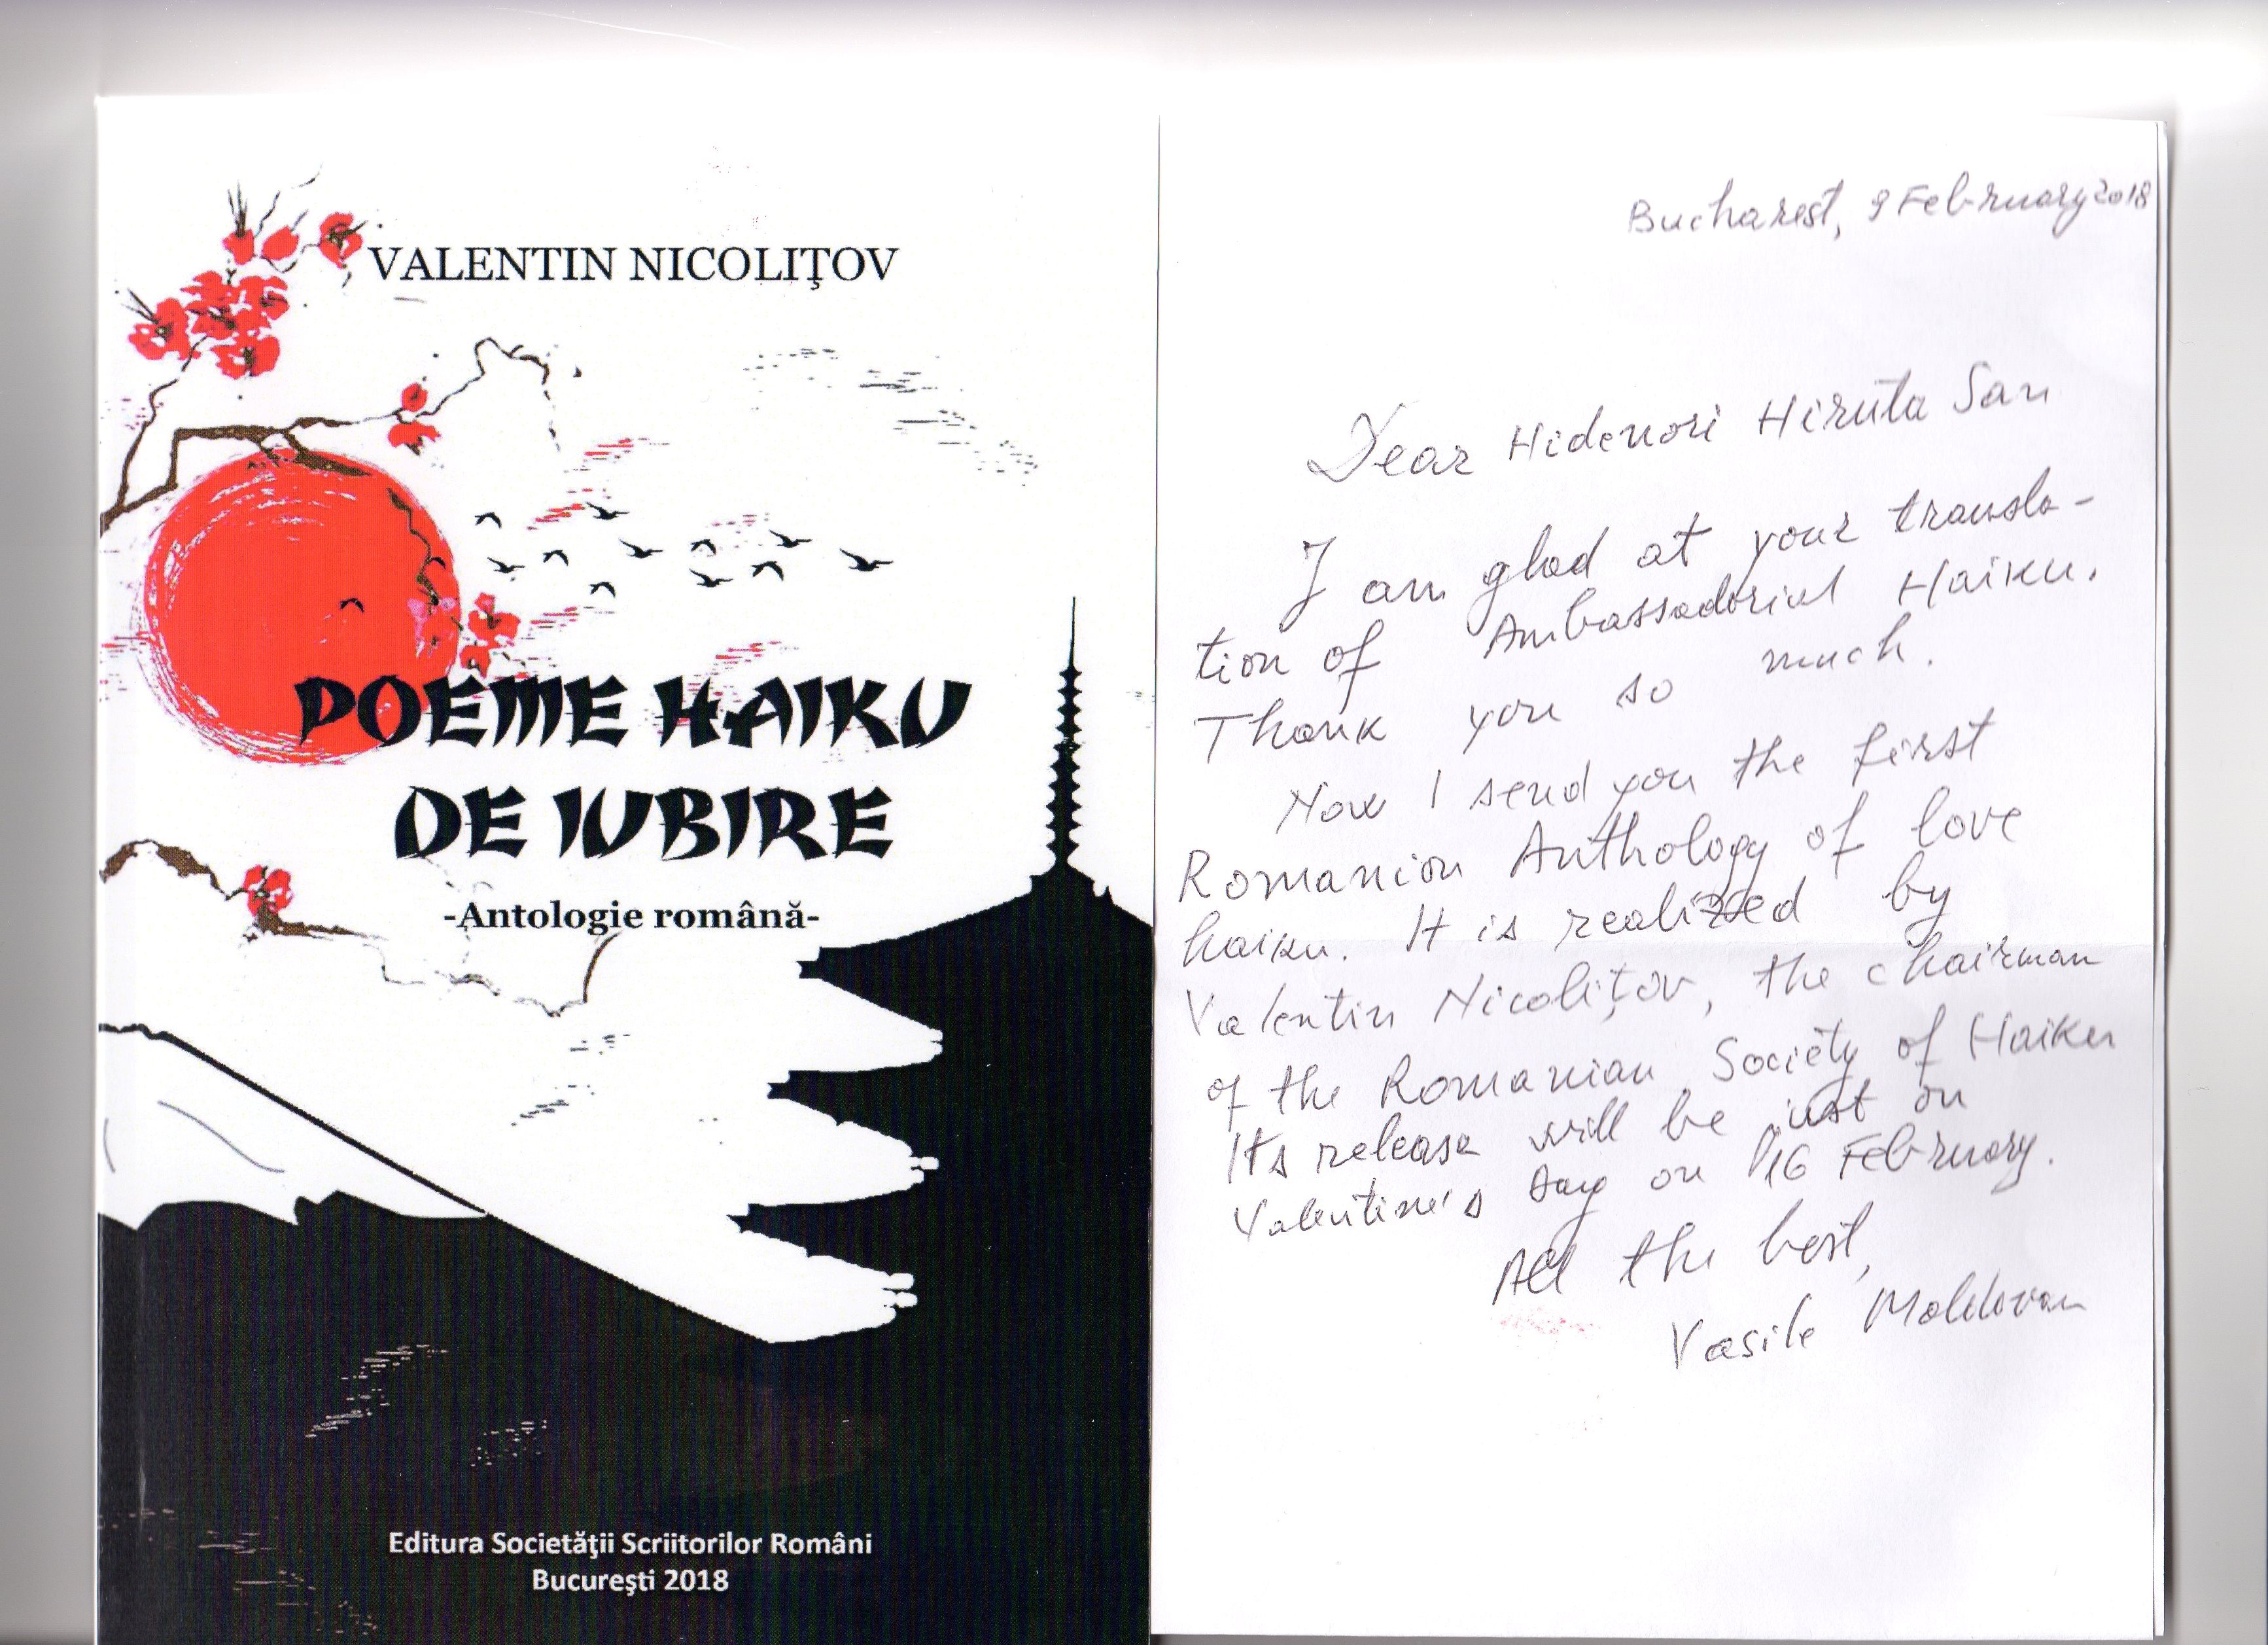 VALENTIN NICOLIŢOV
POEME HAIKU
DE IUBIRE
-Antologie română-
Editura Societăţii Scriitorilor Români
Bucureşti 2018
Bucharest, 9 February 2018
Dear Hidenori Hiruta San
I am glad at your transla-
tion of Ambassadorial Haiku.
Thank you so much.
Now I send you the first
Romanian Anthology of love
haiku. It is realized by
Valentin Nicoliţov, the chairman
of the Romanian Society of Haiku
Its release will be just on
Valentine's day on 16 February.
All the best,
Vasile Moldovan